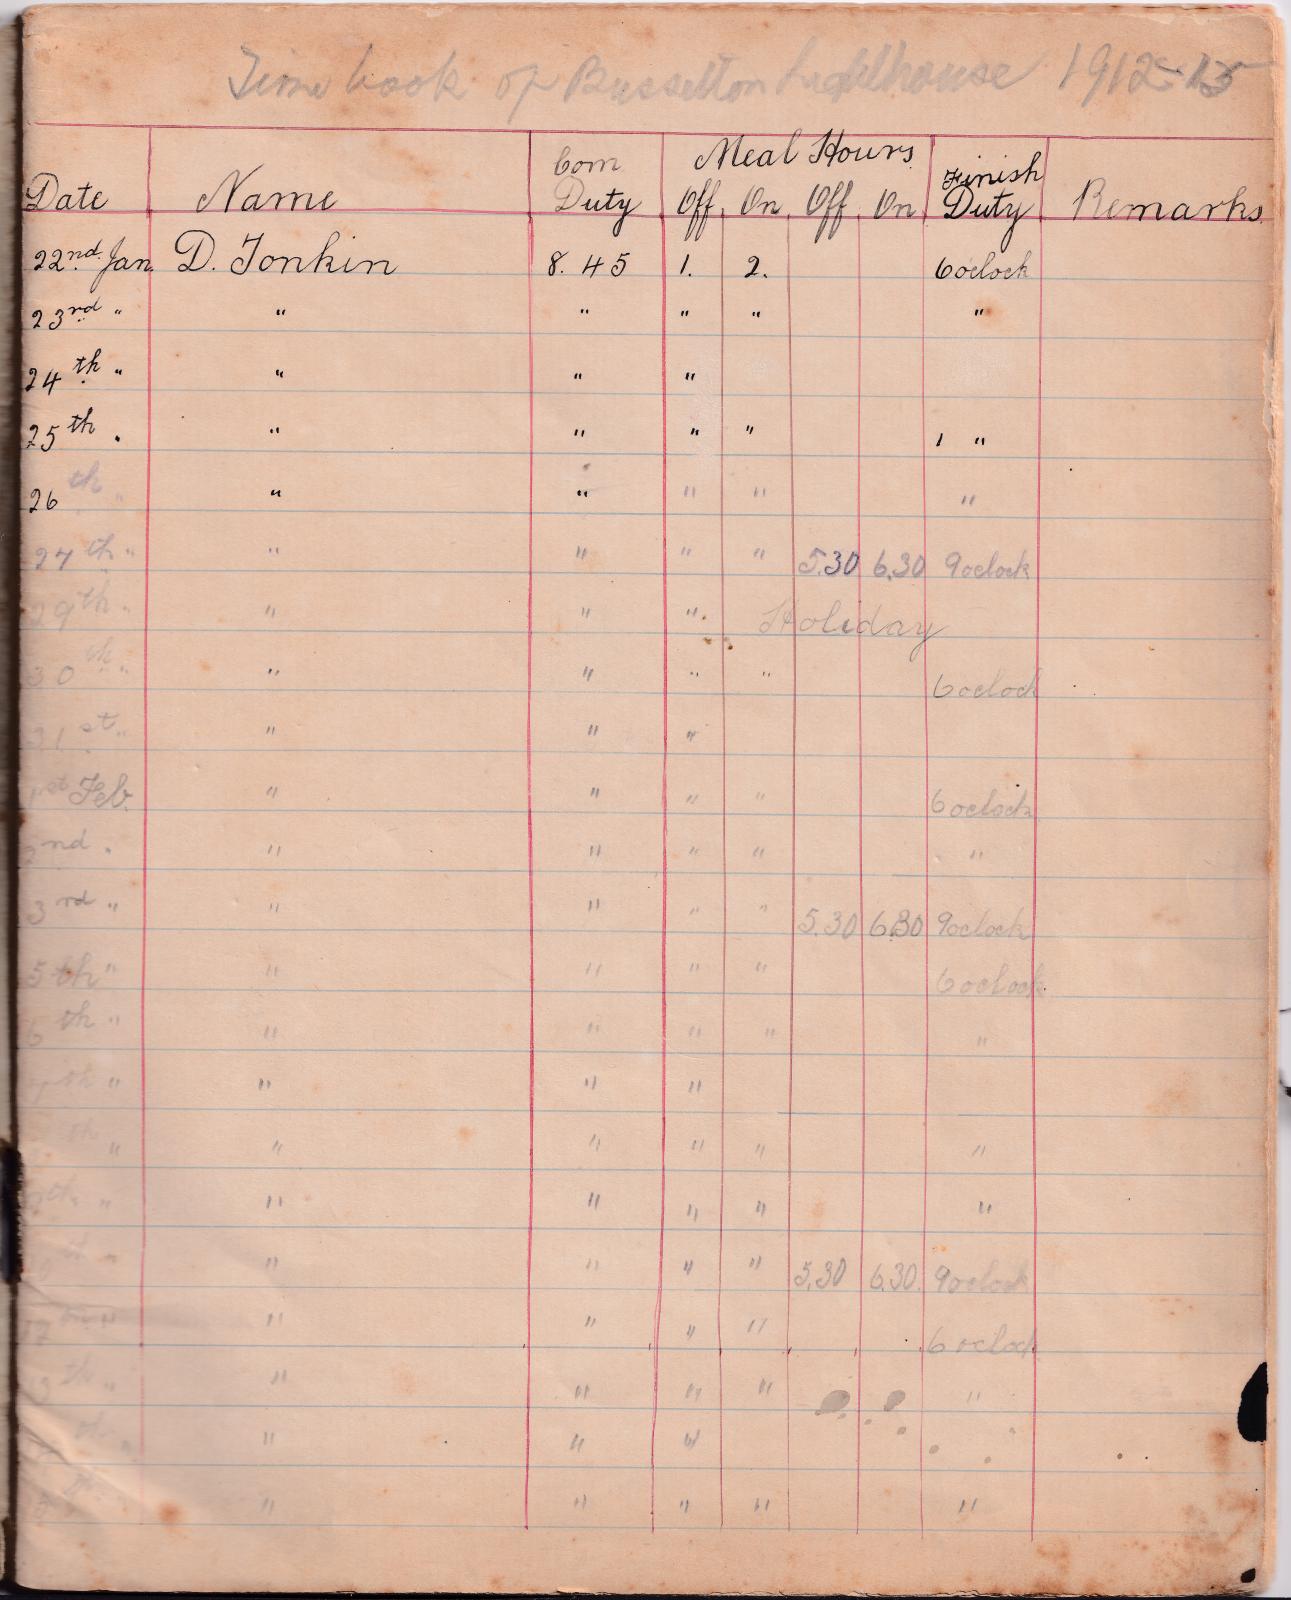 Time book of Busselton Lighthouse 1912-15
Date Name Com Duty Meal Hours Off On Off On Finish Duty Remarks
22nd. Jan. D. Tonkin 8. 45 1. 2. 6oclock
23rd " " " " " "
24th " " " "
25th . " " " " "
26th " " " " " "
27th " " " " " 5.30 6.30 9oclock
29th " " " " Holiday
30th " " " " " 6oclock
31st " " " "
1st Feb. " " " " 6oclock
2nd . " " " " "
3rd " " " " " 5.30 6.30 9oclock
5th " " " " " 6oclock
6th " " " " " "
7th " " " "
th " " " " " "
th " " " " " "
th " " " " " 5.30 6.30. 9oclock
12 " " " " " 6 oclock
13th " " " " " "
th " " " "
" " " " "